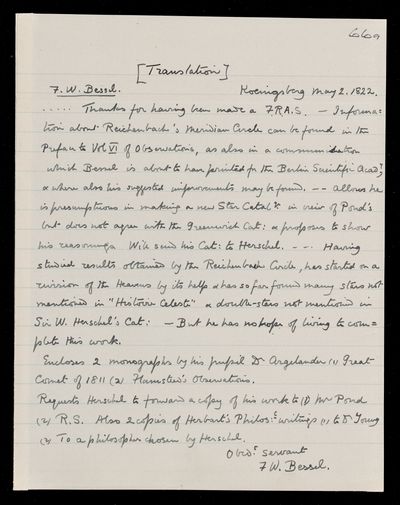 669
[Translation]
F. W. Bessel. Koenigsberg May 2. 1822.
..... Thanks for having been made a F.R.A.S. — Informa=
tion about Reichenbach's Meridian Circle can be found in the
Preface to Vol VI of Observations, as also in a communication
which Bessel is about to have printed for the Berlin Scientific Acady,
& where also his suggested improvements may be found. -- allows he
is presumptuous in making a new Star Catalᵍ in view of Pond's
but does not agree with the Greenwich Cat: & proposes to show
his reasonings Will send his Cat: to Herschel. - - . Having
studied results obtained by the Reichenbach Circle, has started on a
revision of the Heavens by its help & has so far found many stars not
mentioned in "Histoire Celeste" & double-stars not mentioned in
Sir W. Herschel's Cat: — But he has no hopes of living to com=
plete this work.
Encloses 2 monographs by his pupil Dr Argelander (1) Great
Comet of 1811 (2) Flamsteed's Observations.
Requests Herschel to forward a copy of his work to (1) Mr Pond
(2) R.S. Also 2 copies of Herbart's Philos:ᶜ writings (1) to Dr Young
(2) To a philosopher chosen by Herschel.
Obedᵗ servant
F. W. Bessel.